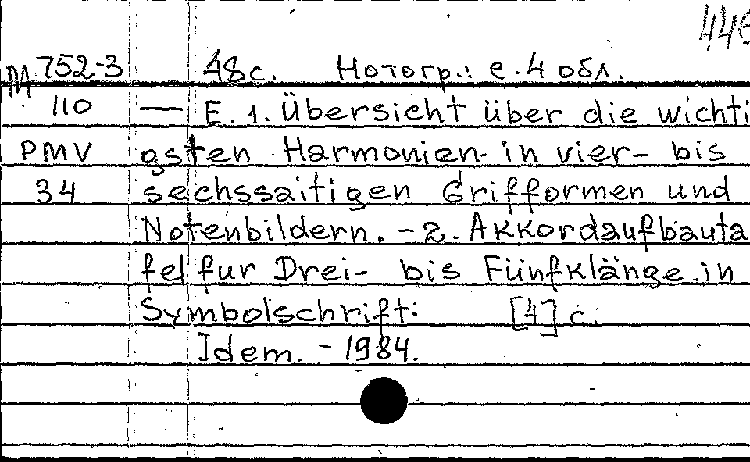 446
М 752-3 48с. Нотогр.: с. 4 обл.
110 — E. 1. Übersicht über die wichti
PMV gsten Harmonien in vier- bis
34 sechssaitigen Grifformen und
Notenbildern. - 2. Akkordaufbauta
fel fur Drei- bis Fünfklänge in
Symbolschrift: [4] c.
Idem. - 1984.